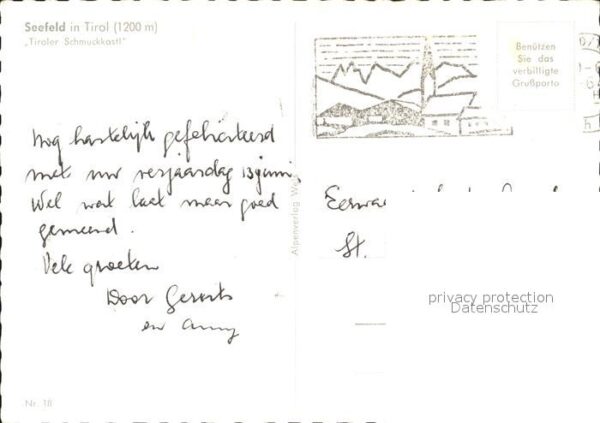 Seefeld in Tirol (1200 m)
„Tiroler Schmuckkastl"
Benützen
Sie das
verbilligte
Grußporto
Nog hartelijk gefeliciteerd
met uw verjaardag 13 juni,
Wel wat laat maar goed
gemeend.
Vele groeten
Door
en Anny
Alpenverlag
St.
privacy protection
Datenschutz
Nr. 18